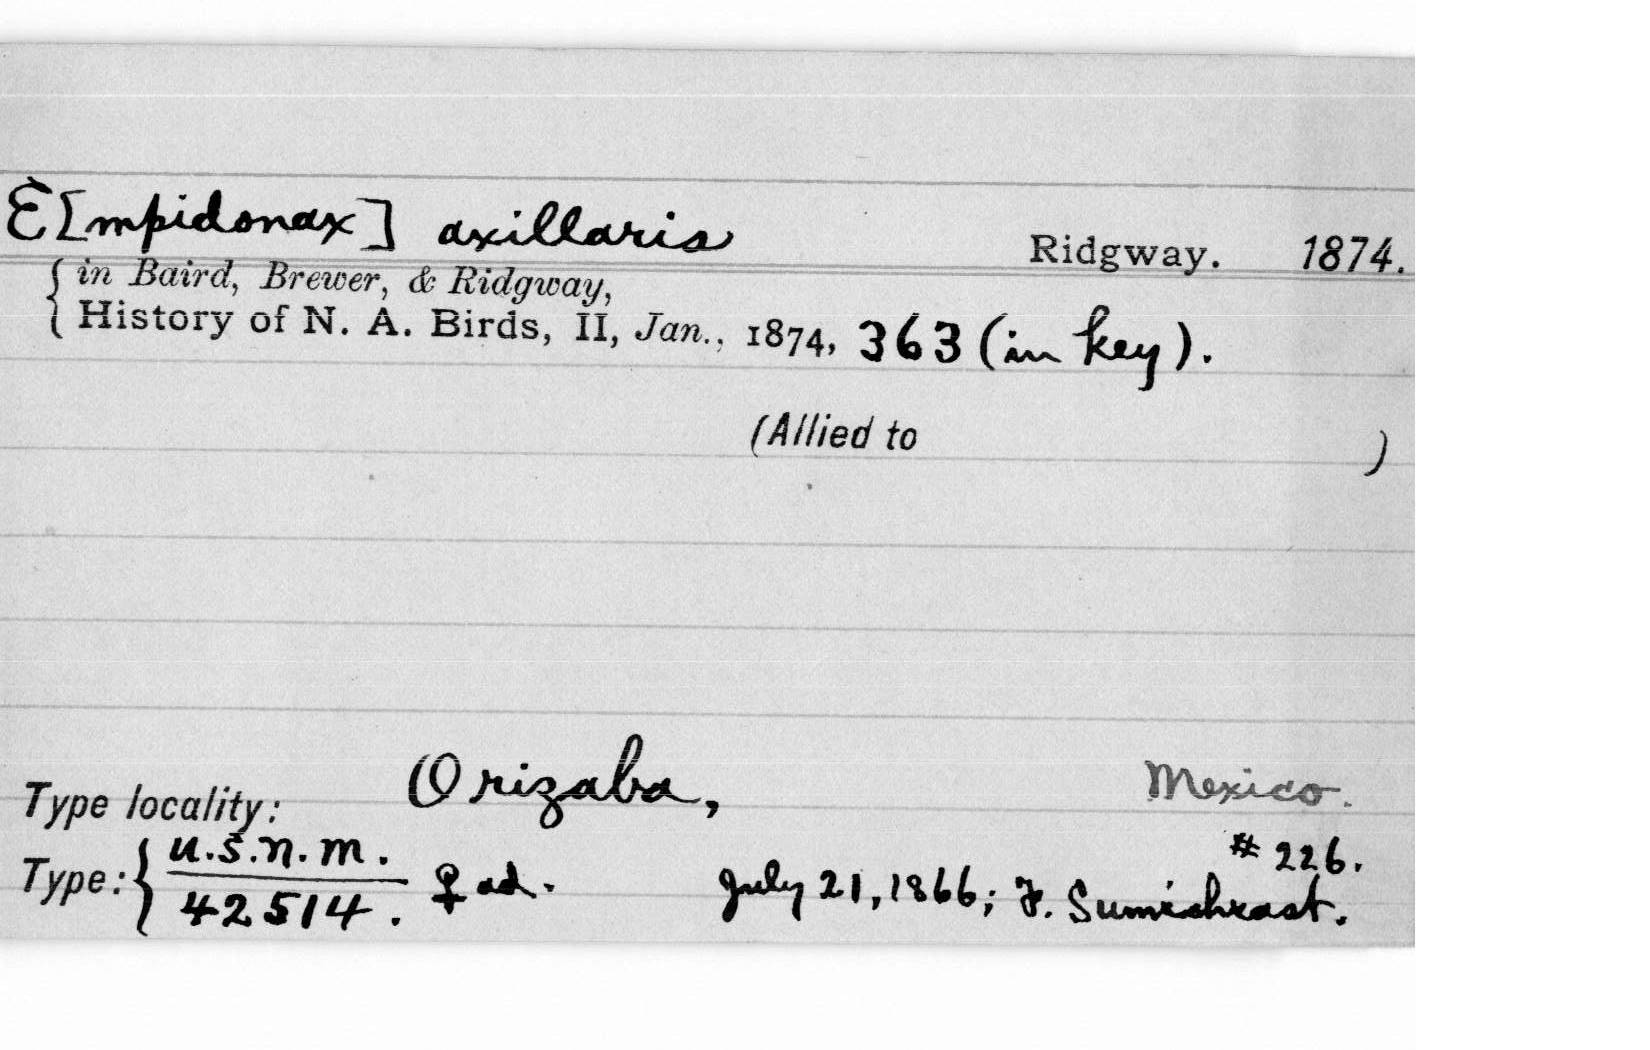 E[mpidonax] axillaris Ridgway. 1874.
in Baird, Brewer, & Ridgway,
History of N. A. Birds, II, Jan., 1874, 363 (in key).
(Allied to )
Type locality: Orizaba, Mexico.
Type: U.S.N.M. # 226.
42514. ♀ ad. July 21, 1866; F. Sumichrast.